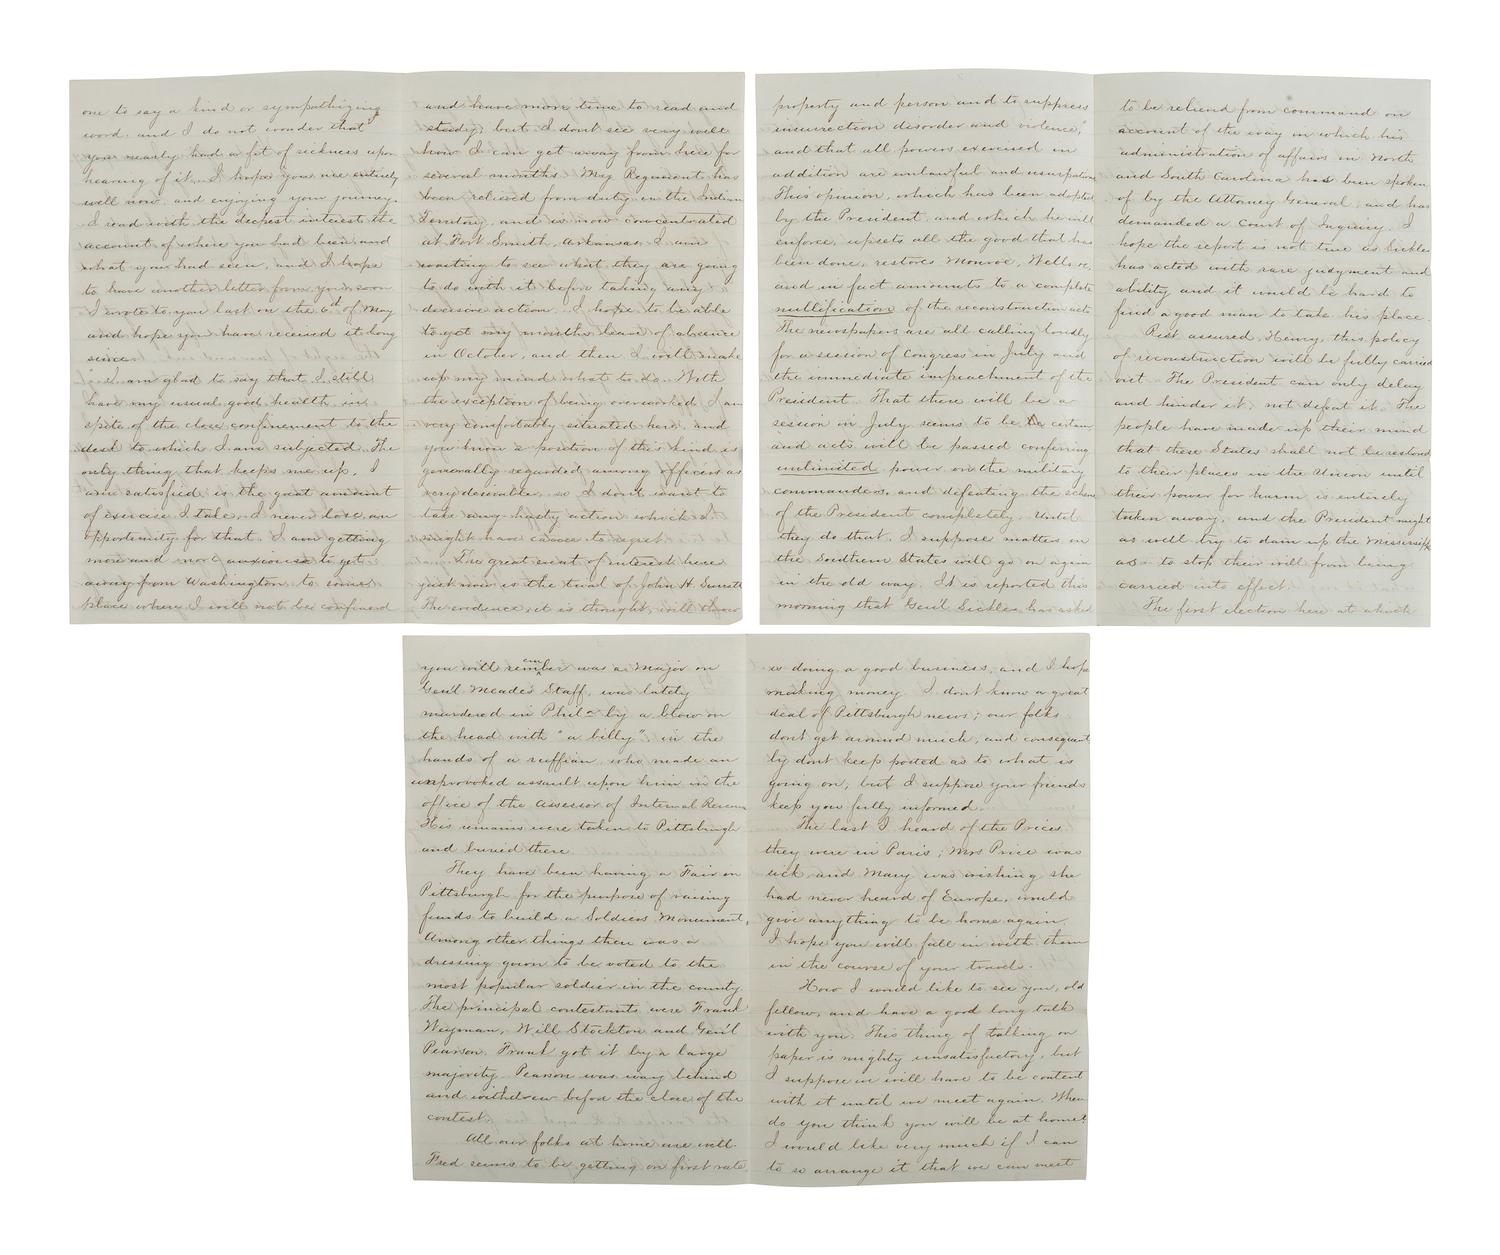 one to say a kind or sympathizing
word, and I do not wonder that
you nearly had a fit of sickness upon
hearing of it. I hope you are entirely
well now, and enjoying your journey.
I read with the deepest interest the
account of where you had been and
what you had seen, and I hope
to have another letter from you soon
I wrote to you last on the 6th of May
and hope you have received it long
since.
I am glad to say that I still
have my usual good health, in
spite of the close confinement to the
desk to which I am subjected. The
only thing that keeps me up, I
am satisfied, is the great amount
of exercise I take, I never lose an
opportunity for that. I am getting
more and more anxious to get
away from Washington to some
place where I will not be confined
and have more time to read and
study, but I dont see very well
how I can get away from here for
several months. My Regiment has
been relieved from duty in the Indian
Territory, and is now concentrated
at Fort Smith, Arkansas. I am
waiting to see what they are going
to do with it before taking any
decisive action. I hope to be able
to get my month leave of absence
in October, and then I will make
up my mind what to do. With
the exception of being overworked I am
very comfortably situated here, and
you know a position of this kind is
generally regarded among officers as
very desirable, so I don't want to
take any hasty action which I
might have cause to regret.
The great event of interest here
just now is the trial of John H. Surratt
The evidence, it is thought, will show
property and person and to suppress
insurrection disorder and violence,"
and that all powers exercised in
addition are unlawful and usurpation
This opinion, which has been adopted
by the President, and which he will
enforce, upsets all the good that has
been done, restores Monroe, Wells,
and in fact amounts to a complete
nullification of the reconstruction acts
The newspapers are all calling loudly
for a session of Congress in July and
the immediate impeachment of the
President. That there will be a
session in July seems to be certain
and acts will be passed conferring
unlimited power on the military
commanders, and defeating the scheme
of the President completely. Until
they do that, I suppose matters in
the Southern States will go on again
in the old way. It is reported this
morning that Gen'l Sickles has asked
to be relieved from command on
account of the way in which his
administration of affairs in North
and South Carolina has been spoken
of by the Attorney General, and has
demanded a Court of Inquiry. I
hope the report is not true as Sickles
has acted with rare judgment and
ability and it would be hard to
find a good man to take his place.
Rest assured, Henry, this policy
of reconstruction will be fully carried
out. The President can only delay
and hinder it, not defeat it. The
people have made up their mind
that these States shall not be restored
to their places in the Union until
their power for harm is entirely
taken away, and the President might
as well try to dam up the Mississippi
as to stop their will from being
carried into effect.
The first election here at which
you will remember was a Major on
Gen'l Meade's Staff, was lately
murdered in Phila by a blow on
the head with "a billy" in the
hands of a ruffian who made an
unprovoked assault upon him in the
office of the Assessor of Internal Revenue
His remains were taken to Pittsburgh
and buried there.
They have been having a Fair in
Pittsburgh for the purpose of raising
funds to build a Soldiers Monument,
Among other things there was a
dressing gown to be voted to the
most popular soldier in the county.
The principal contestants were Frank
Weyman, Will Stockton and Gen'l
Pearson. Frank got it by a large
majority. Pearson was way behind
and withdrew before the close of the
contest.
All our folks at home are well.
Fred seems to be getting on first rate
is doing a good business, and I hope
making money. I dont know a great
deal of Pittsburgh news; our folks
dont get around much, and consequent
ly dont keep posted as to what is
going on, but I suppose your friends
keep you fully informed.
The last I heard of the Prices
they were in Paris; Mrs Price was
sick and Mary was wishing she
had never heard of Europe, would
give anything to be home again.
I hope you will fall in with them
in the course of your travels.
How I would like to see you, old
fellow, and have a good long talk
with you. This thing of talking on
paper is mighty unsatisfactory, but
I suppose we will have to be content
with it until we meet again. When
do you think you will be at home?
I would like very much if I can
to so arrange it that we can meet